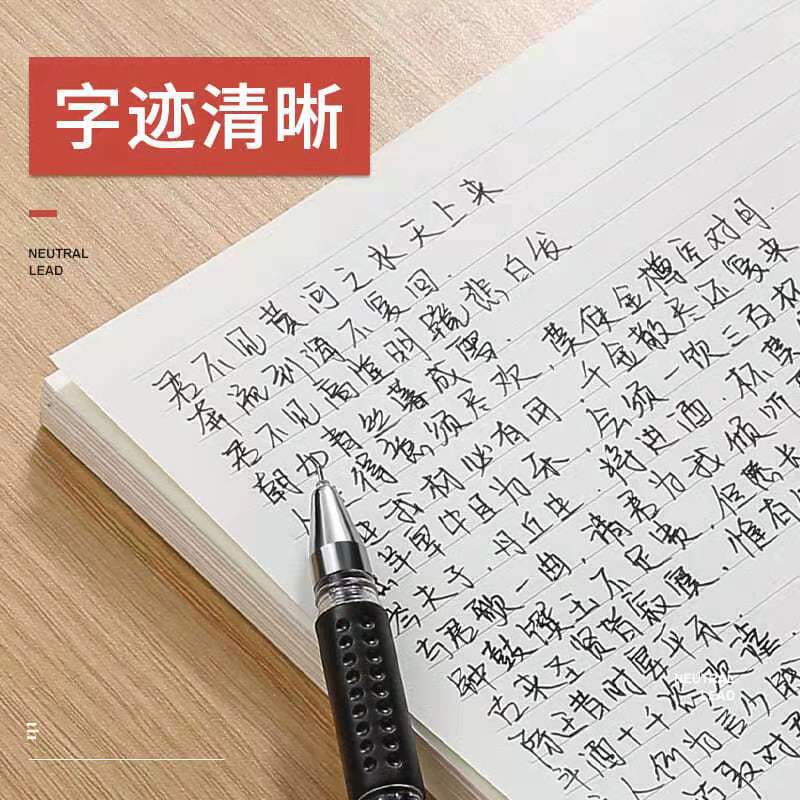 字迹清晰
NEUTRAL
LEAD
君不见黄河之水天上来
奔流到海不复回.
君不见高堂明镜悲白发
朝如青丝暮成雪.
得意须尽欢,莫使金樽空对月.
我材必有用.千金散尽还复来
羊宰牛且为乐,会须一饮三百杯
岑夫子.丹丘生.将进酒.杯莫
与君歌一曲,请君为我倾耳
钟鼓馔玉不足贵.但愿长
古来圣贤皆寂寞,惟有
陈王昔时宴平乐.
斗酒十千恣欢谑.
主人何为言少
对君
NEUTRAL
LEAD